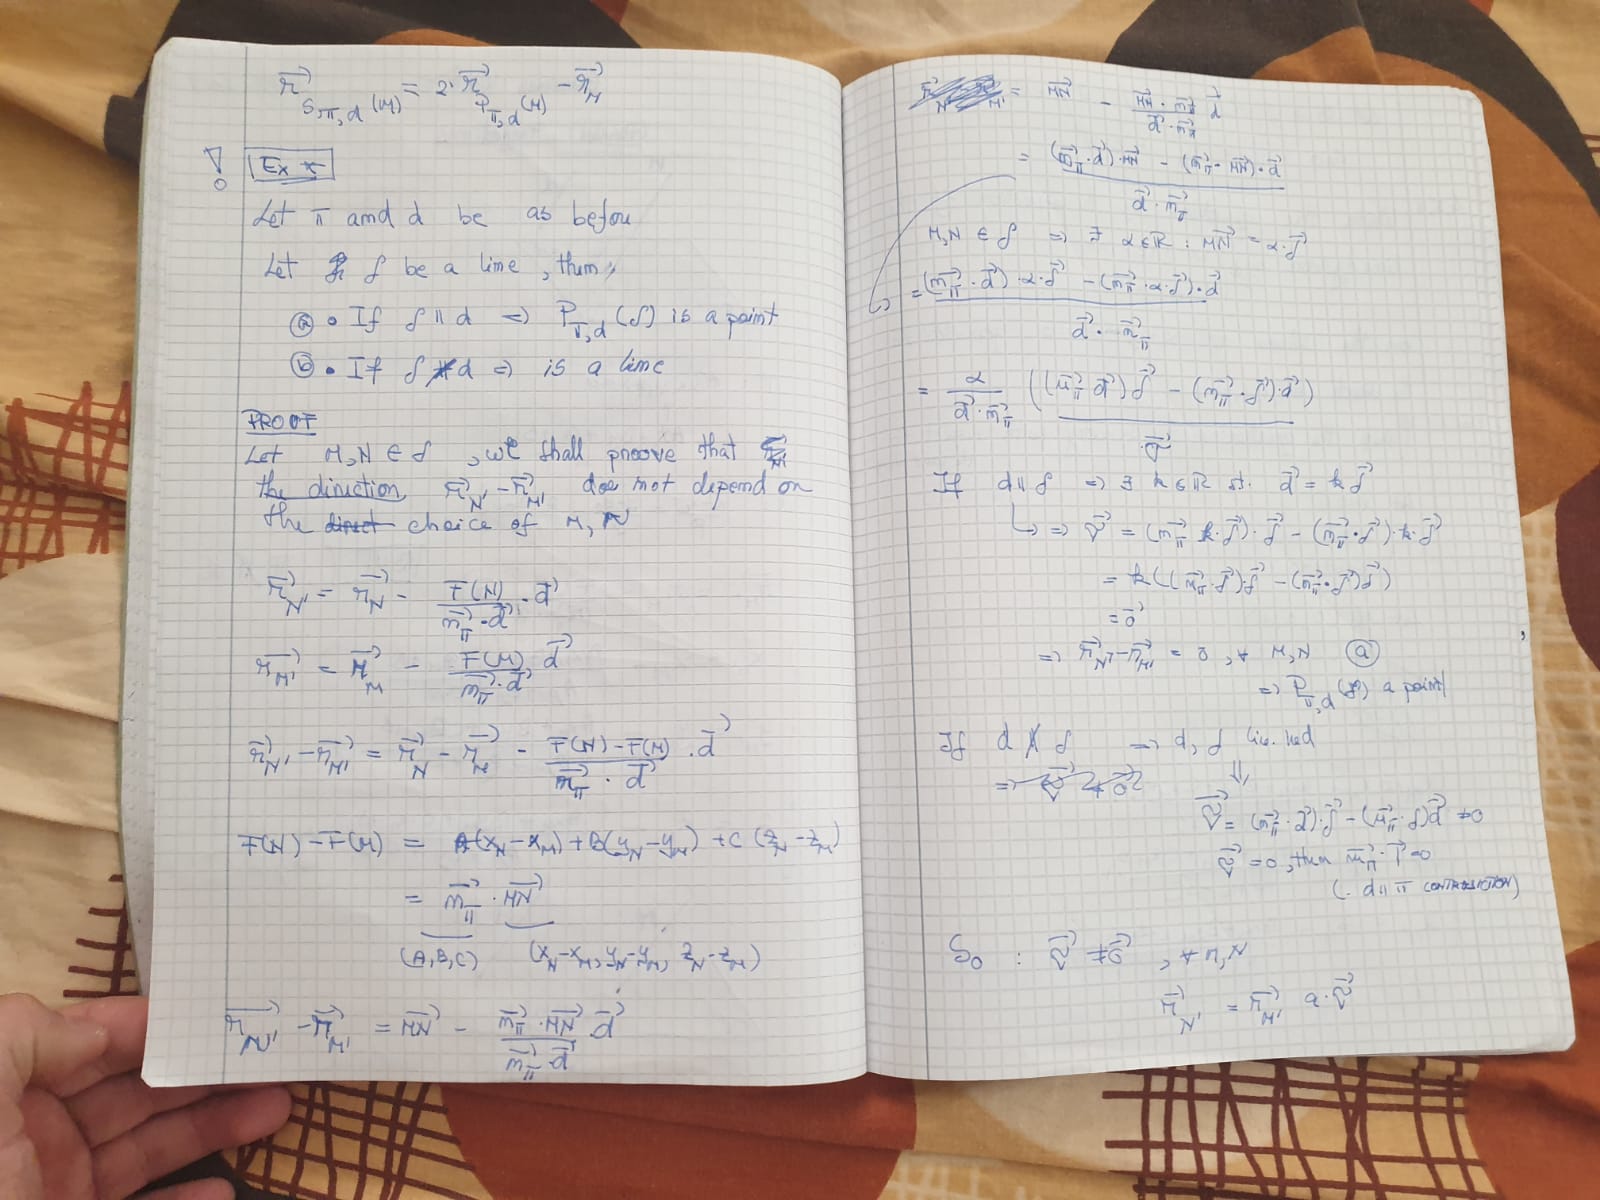 r⃗_{S_{π,d}(M)} = 2·r⃗_{P_{π,d}(M)} − r⃗_M
! Ex *
Let π and d be as before
Let f be a line, then,
ⓐ • If f ∥ d => P_{π,d}(f) is a point
ⓑ • If f ∦ d => is a line
PROOF
Let M,N ∈ f, we shall proove that
the direction r⃗_{N'} − r⃗_{M'} does not depend on
the choice of M, N
r⃗_{N'} = r⃗_N − F(N)/(n⃗_π · d⃗) · d⃗
r⃗_{M'} = r⃗_M − F(M)/(n⃗_π · d⃗) d⃗
r⃗_{N'} − r⃗_{M'} = r⃗_N − r⃗_M − (F(N) − F(M))/(n⃗_π · d⃗) · d⃗
F(N) − F(M) = A(x_N − x_M) + B(y_N − y_M) + C(z_N − z_M)
= n⃗_π · MN⃗
(A,B,C) (x_N − x_M, y_N − y_M, z_N − z_M)
r⃗_{N'} − r⃗_{M'} = MN⃗ − (n⃗_π · MN⃗)/(n⃗_π · d⃗) · d⃗
= MN⃗ − (MN⃗ · n⃗_π)/(d⃗ · n⃗_π) d⃗
= ((n⃗_π · d⃗) · MN⃗ − (n⃗_π · MN⃗) · d⃗)/(d⃗ · n⃗_π)
M,N ∈ f => ∃ α ∈ ℝ : MN⃗ = α · f⃗
= ((n⃗_π · d⃗) · α · f⃗ − (n⃗_π · α · f⃗) · d⃗)/(d⃗ · n⃗_π)
= α/(d⃗ · n⃗_π) ((n⃗_π d⃗) f⃗ − (n⃗_π · f⃗) · d⃗)
v⃗
If d ∥ f => ∃ k ∈ ℝ st. d⃗ = k f⃗
↳ => v⃗ = (n⃗_π k · f⃗) · f⃗ − (n⃗_π · f⃗) · k · f⃗
= k((n⃗_π · f⃗) · f⃗ − (n⃗_π · f⃗) f⃗)
= 0⃗
=> r⃗_{N'} − r⃗_{M'} = 0, ∀ M,N ⓐ
=> P_{π,d}(f) a point
If d ∦ f => d, f lin. ind
⇓
v⃗ = (n⃗_π · d⃗) · f⃗ − (n⃗_π · f) d⃗ ≠ 0
v⃗ = 0, then n⃗_π · d⃗ = 0
(. d ∥ π CONTRADICTION)
So : v⃗ ≠ 0⃗, ∀ M,N
r⃗_{N'} = r⃗_{M'} a · v⃗